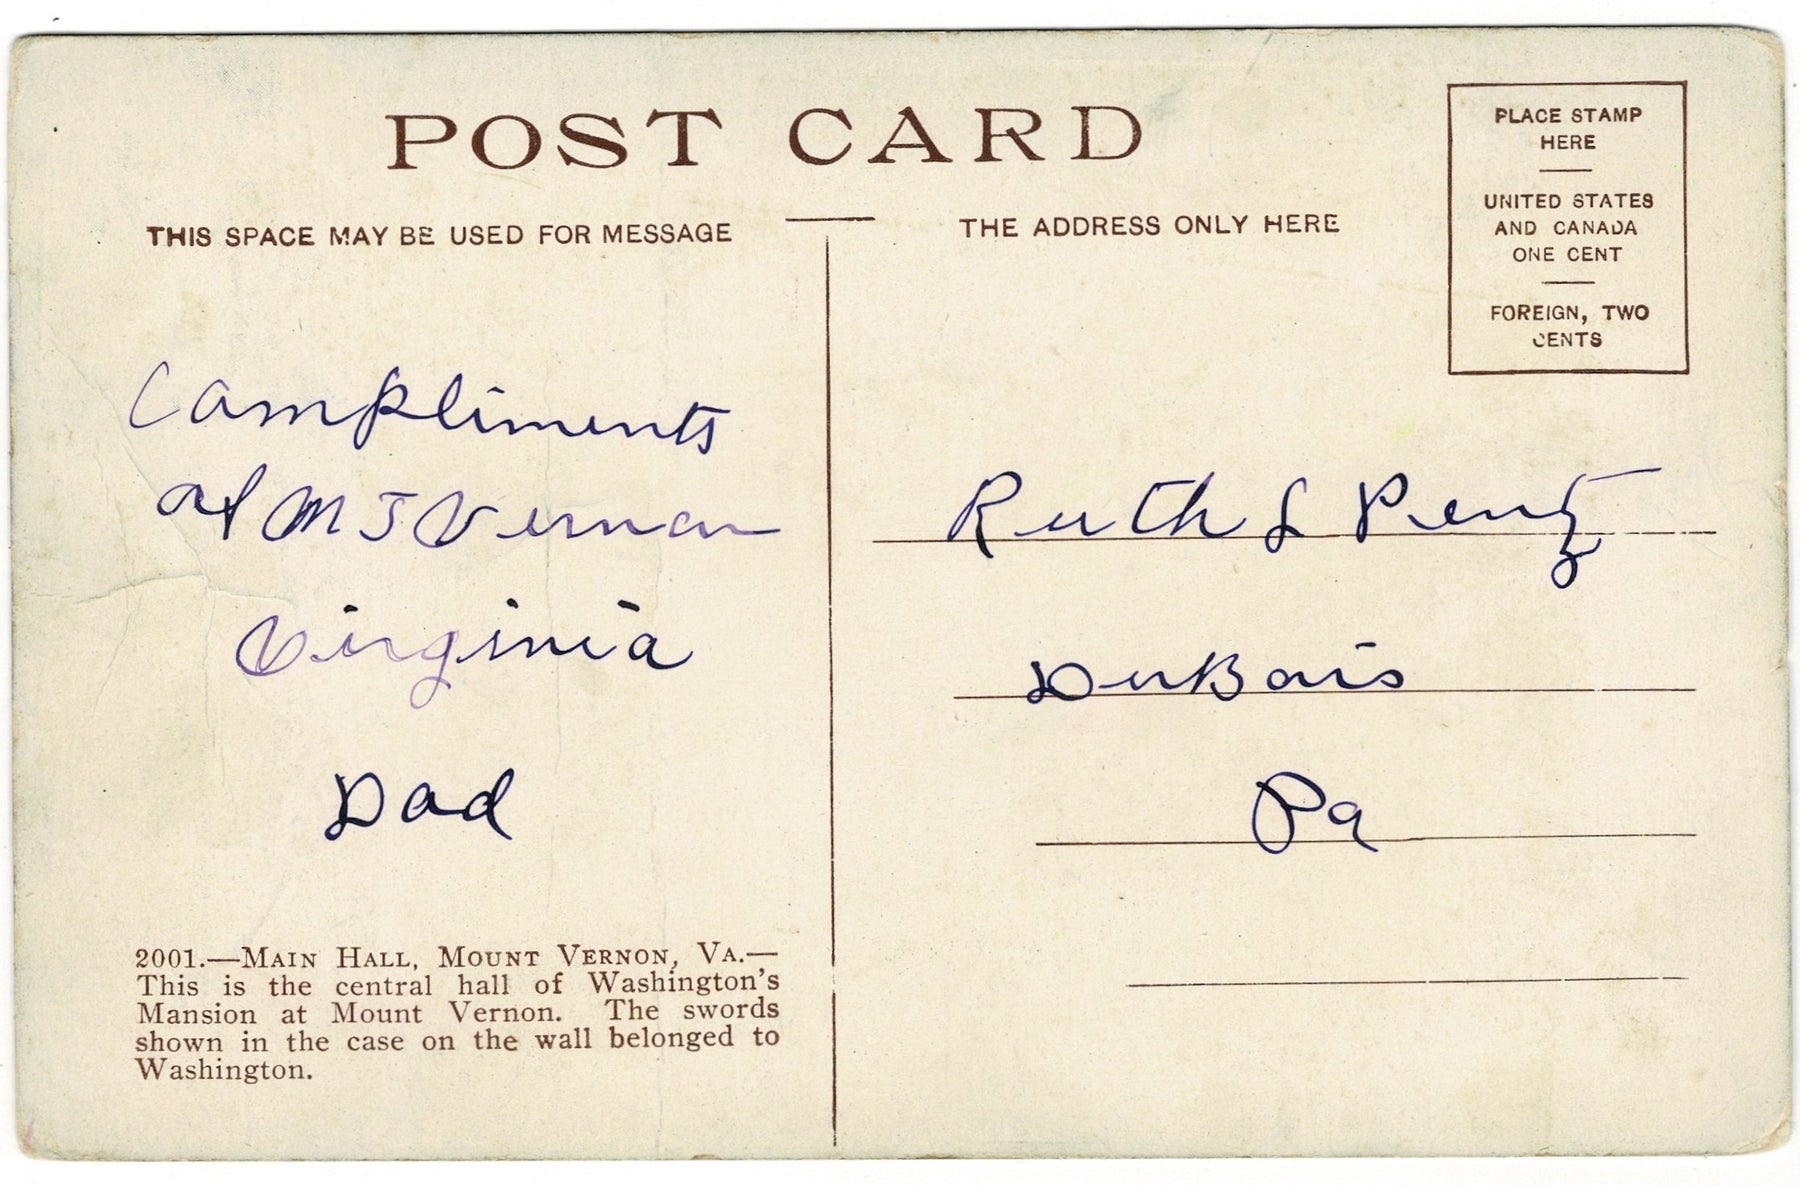 POST CARD
THIS SPACE MAY BE USED FOR MESSAGE
THE ADDRESS ONLY HERE
PLACE STAMP
HERE
UNITED STATES
AND CANADA
ONE CENT
FOREIGN, TWO
CENTS
Compliments
of Mt Vernon
Virginia
Dad
Ruth L Pentz
DuBois
Pa
2001.—Main Hall, Mount Vernon, Va.—
This is the central hall of Washington's
Mansion at Mount Vernon. The swords
shown in the case on the wall belonged to
Washington.